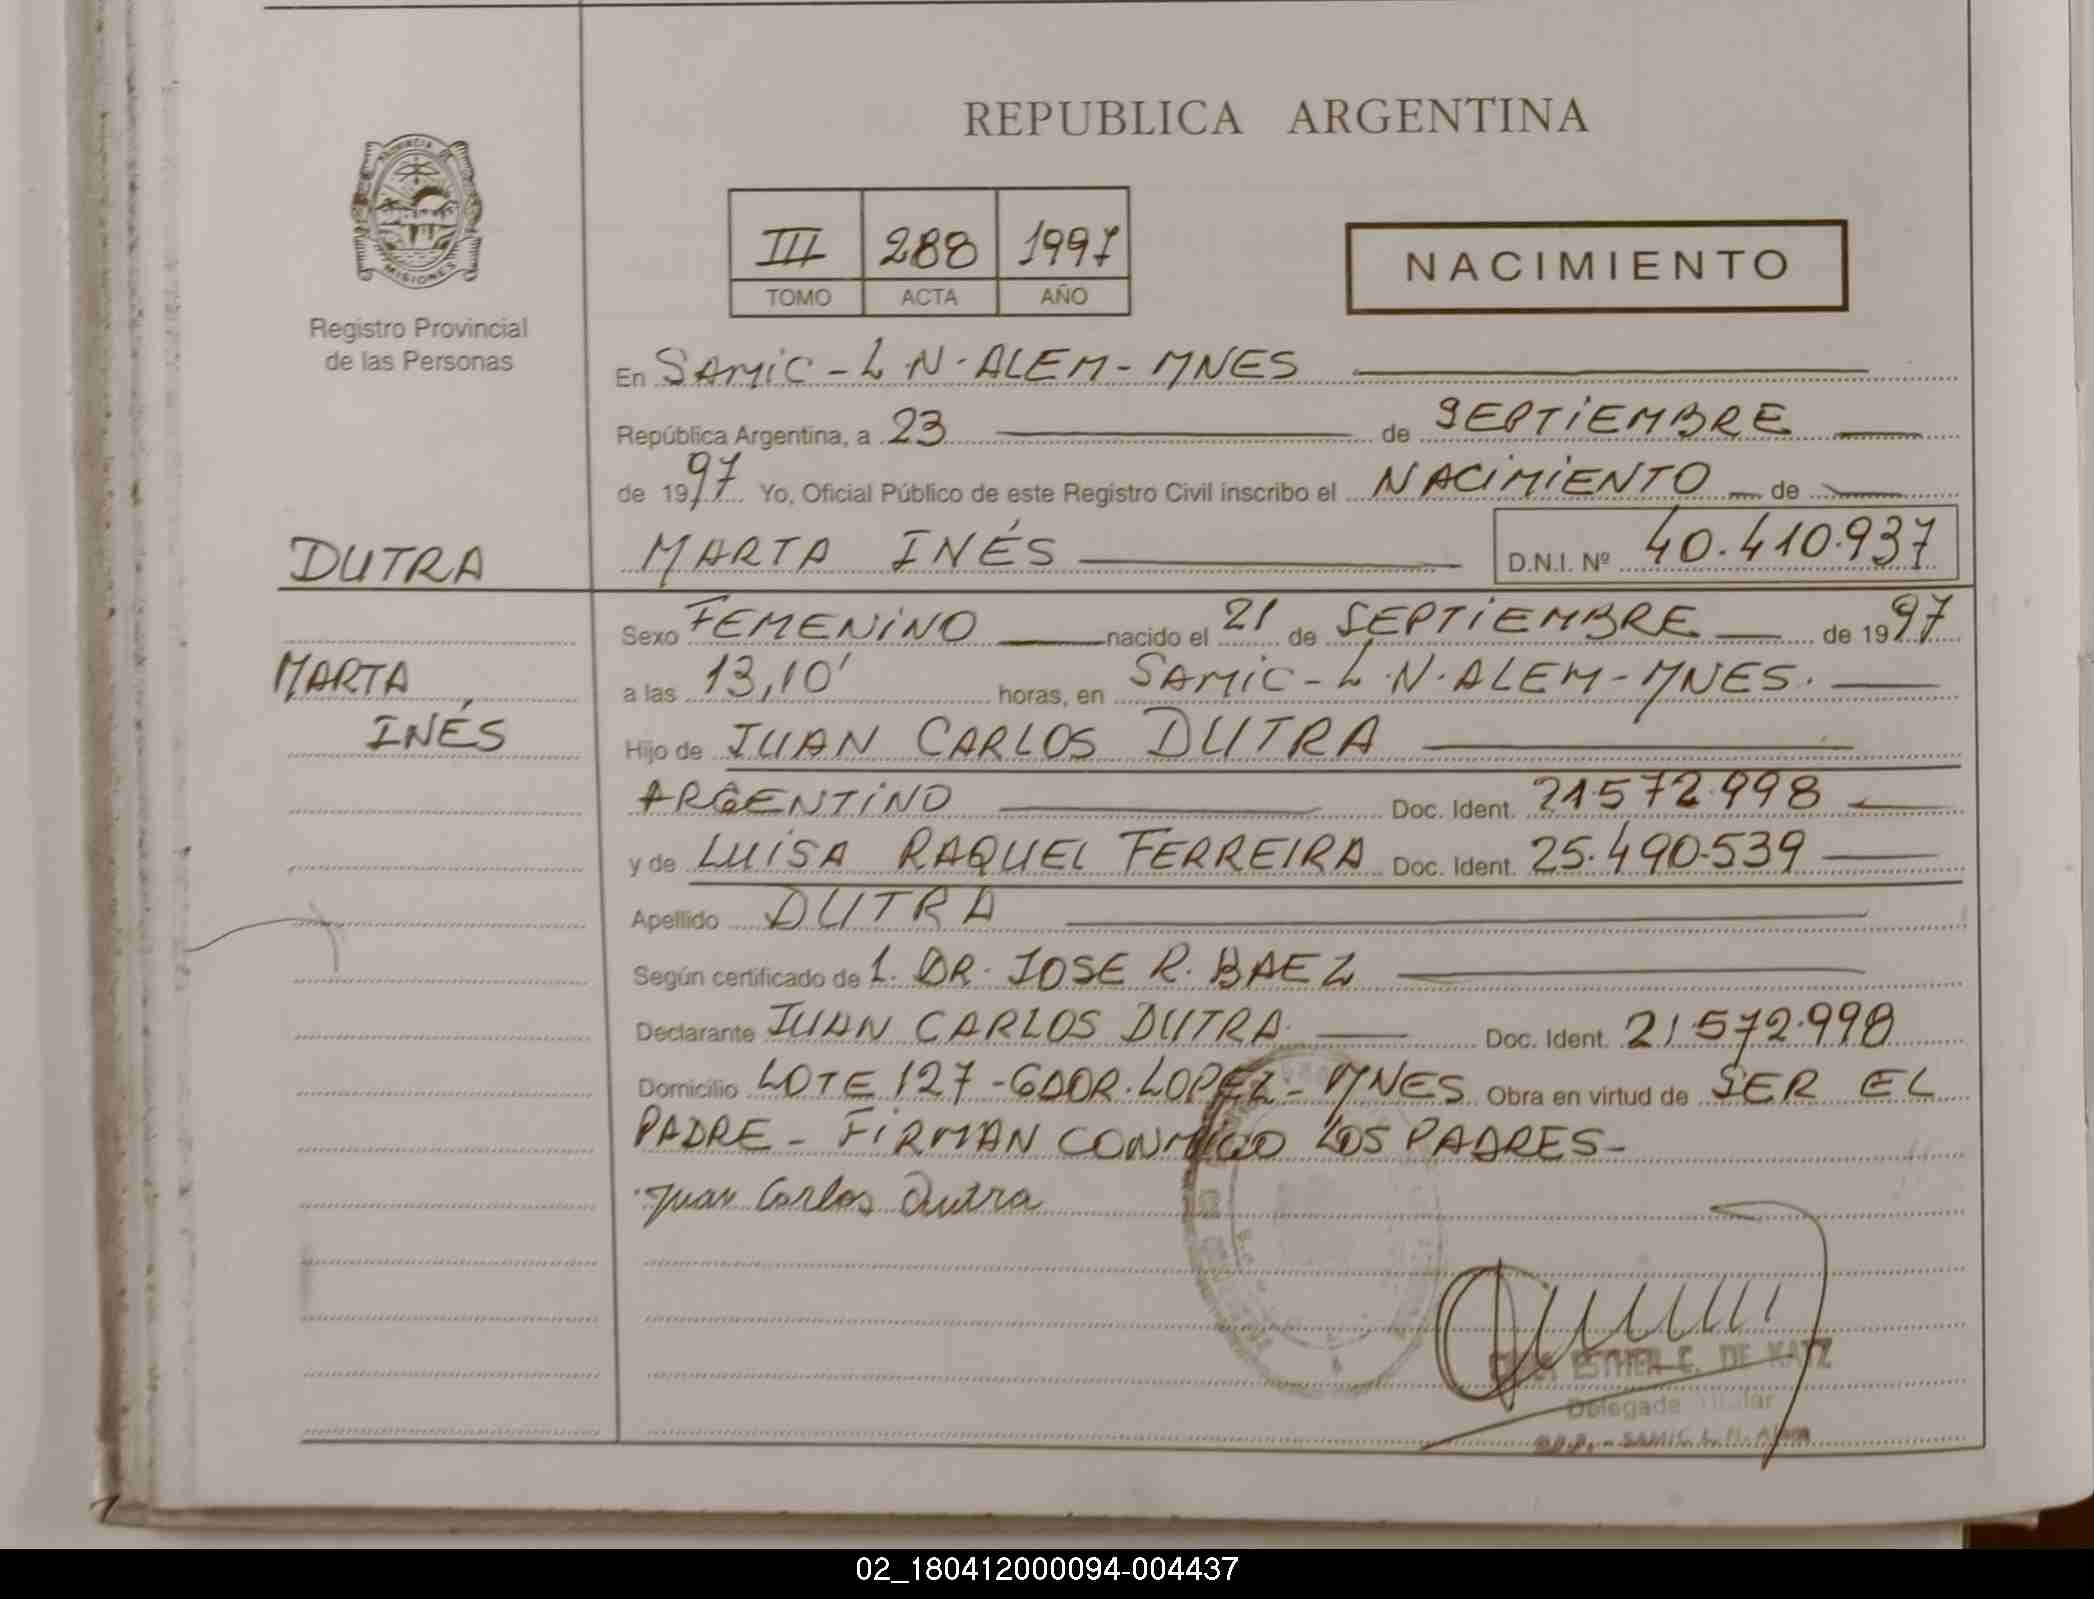 REPUBLICA ARGENTINA
PROVINCIA DE
MISIONES
Registro Provincial
de las Personas
III 288 1997
TOMO ACTA AÑO
NACIMIENTO
En SAMiC - L.N. ALEM - MNES
República Argentina, a 23 de SEPTiEMBRE
de 1997 Yo, Oficial Público de este Registro Civil inscribo el NACiMiENTO de
DUTRA MARTA INÉS D.N.I. Nº 40.410.937
Sexo FEMENiNO nacido el 21 de SEPTiEMBRE de 1997
MARTA a las 13,10' horas, en SAMiC - L.N. ALEM - MNES.
INÉS Hijo de JUAN CARLOS DUTRA
ARGENTiNO Doc. Ident. 21.572.998
y de LUiSA RAQUEL FERREIRA Doc. Ident. 25.490.539
Apellido DUTRA
Según certificado de L. DR. JOSE R. BAEZ
Declarante JUAN CARLOS DUTRA. Doc. Ident. 21.572.998
Domicilio LOTE 127 - GDOR. LOPEZ - MNES Obra en virtud de SER EL
PADRE - FiRMAN CONMiGO LOS PADRES -
Juan Carlos Dutra
ESTHER E. DE KATZ
Delegada Titular
SAMIC L. N. ALEM
02_180412000094-004437